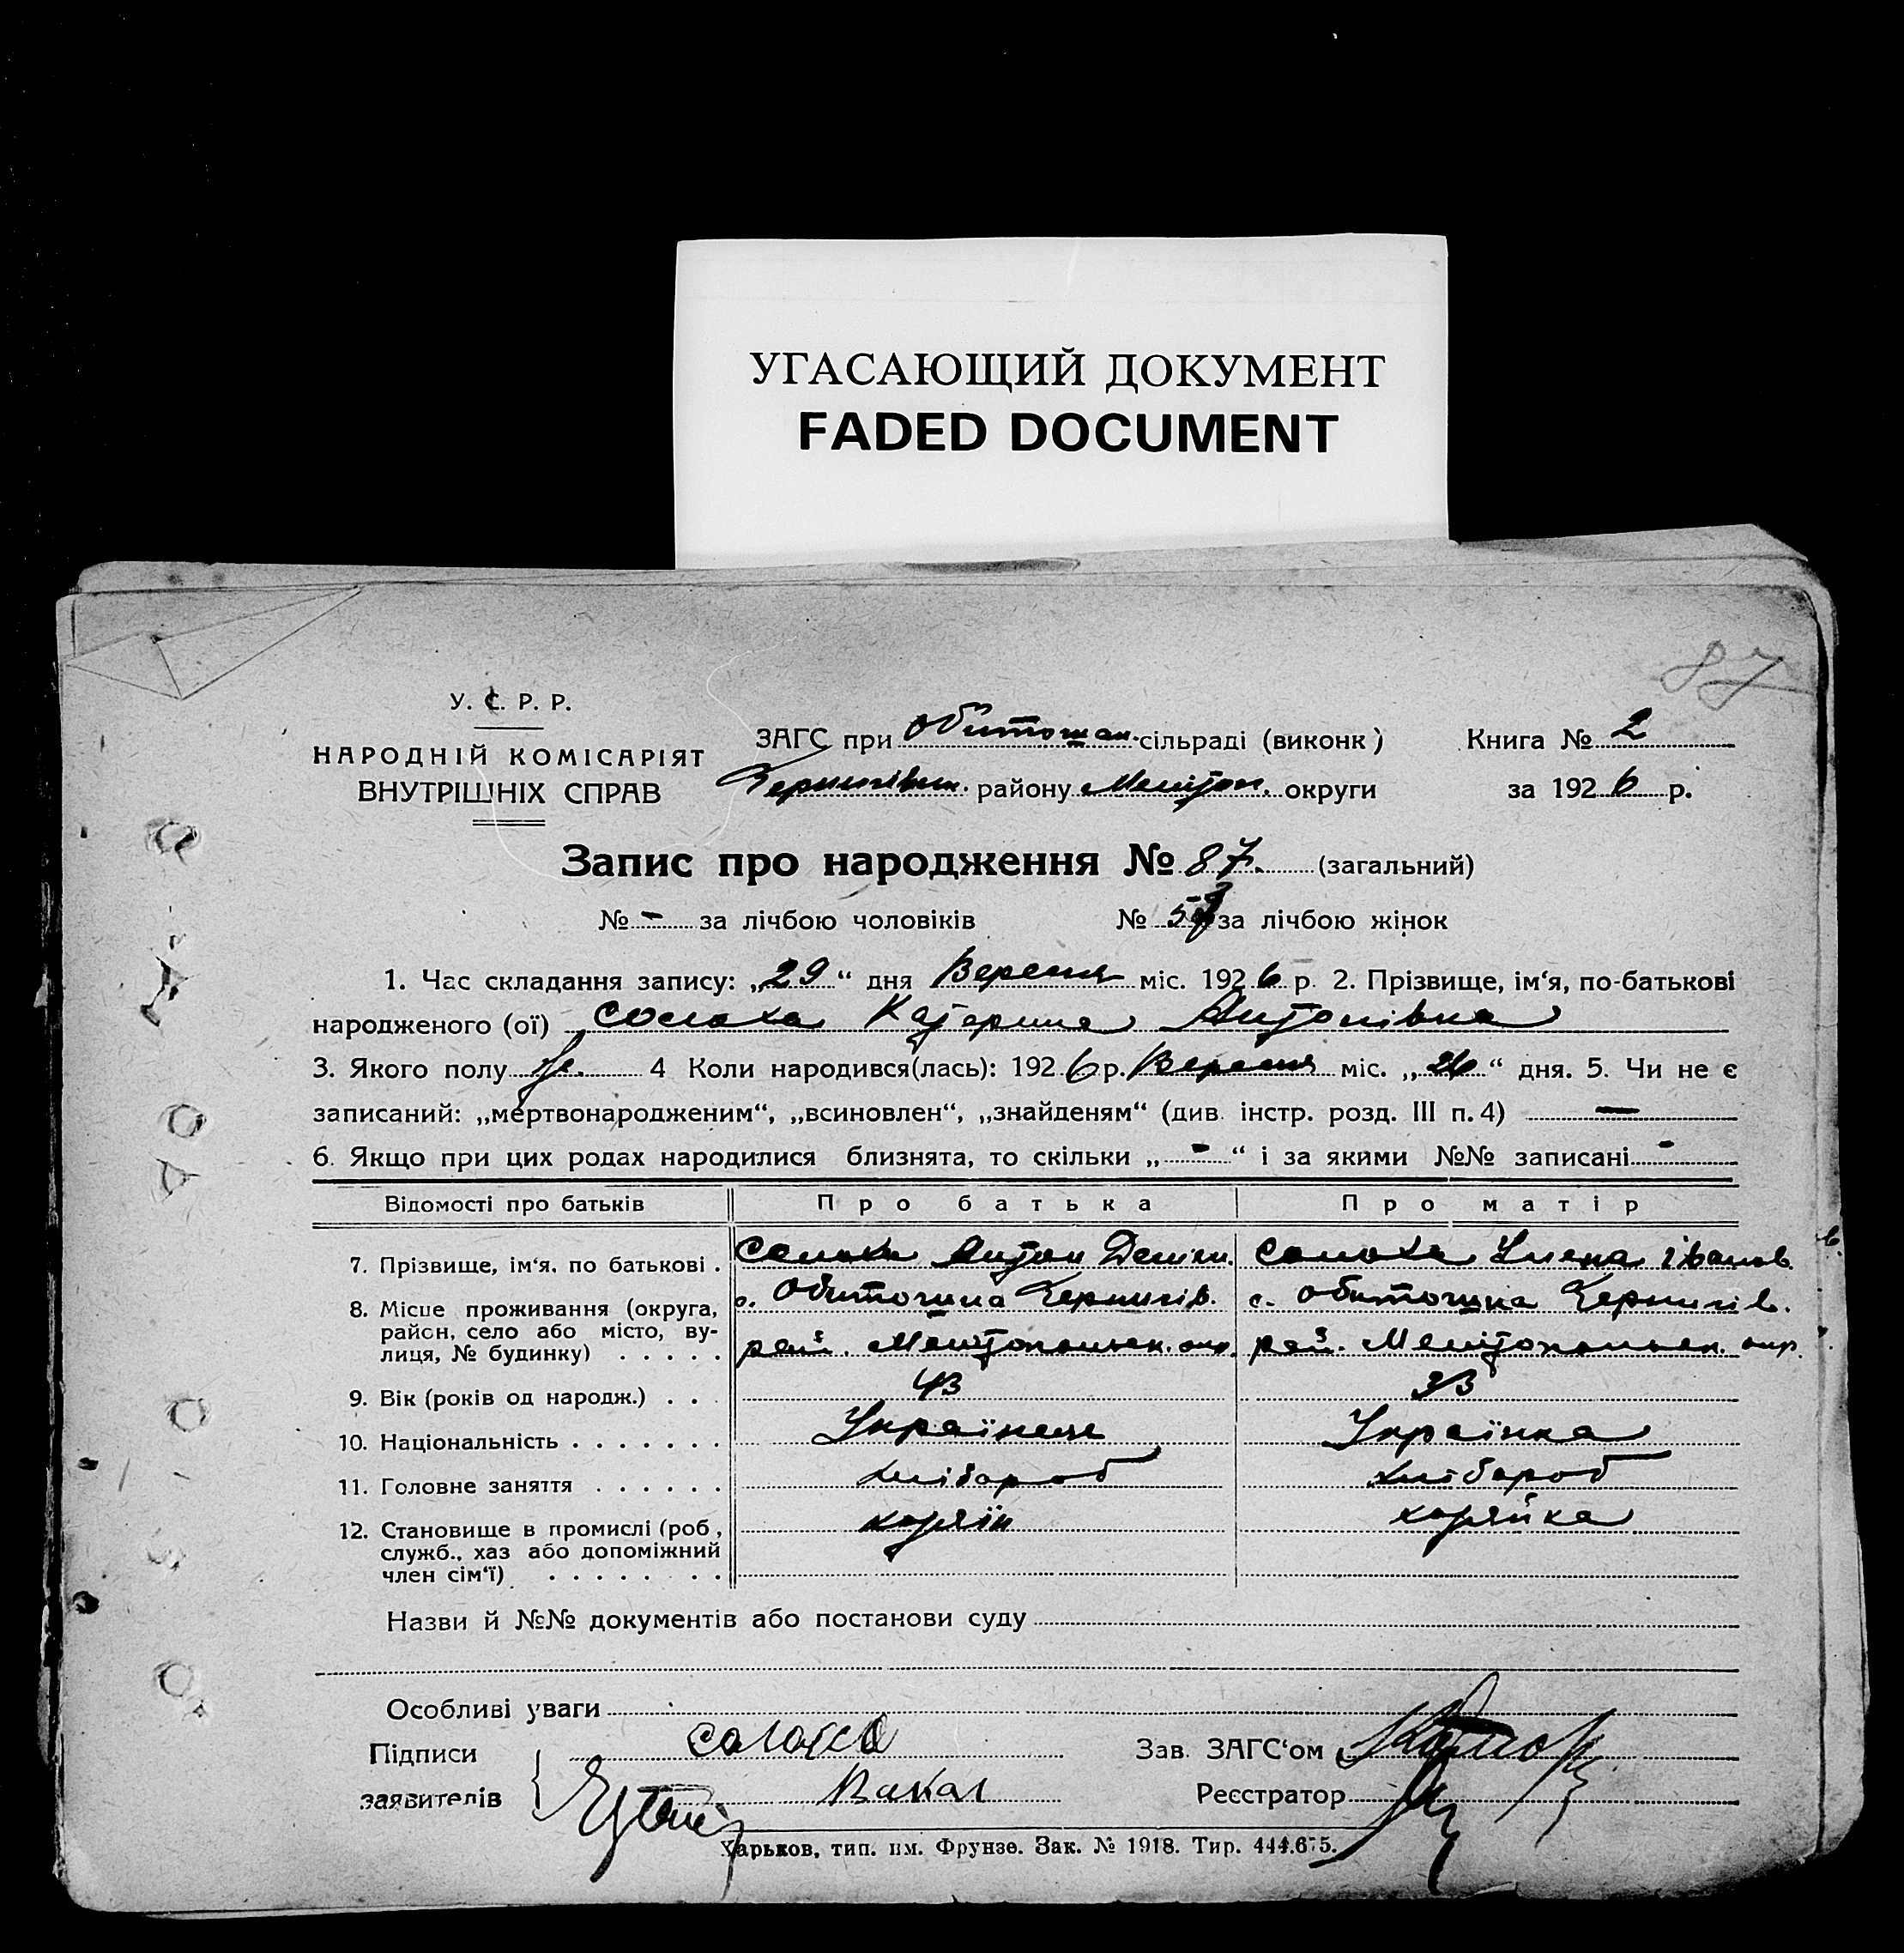 УГАСАЮЩИЙ ДОКУМЕНТ
FADED DOCUMENT
87
У. С. Р. Р.
НАРОДНІЙ КОМІСАРІЯТ
ВНУТРІШНІХ СПРАВ
ЗАГС при Обиточан. сільраді (виконк)
Чернигівськ. району Меліт́оп. округи
Книга № 2
за 1926 р.
Запис про народження № 87. (загальний)
№ - за лічбою чоловіків № 58 за лічбою жінок
1. Час складання запису: „29“ дня Вересня міс. 1926 р. 2. Прізвище, ім‘я, по-батькові
народженого (ої) Солоха Катерина Антонівна
3. Якого полу ж. 4 Коли народився(лась): 1926 р. Вересня міс. „26“ дня. 5. Чи не є
записаний: „мертвонародженим“, „всиновлен“, „знайденям“ (див. інстр. розд. III п. 4) —
6. Якщо при цих родах народилися близнята, то скільки „-“ і за якими №№ записані -
Відомості про батьків Про батька Про матір
7. Прізвище, ім‘я, по батькові . Солоха Антон Солоха Улена Іванов.
8. Місце проживання (округа, район, село або місто, вулиця, № будинку) . . . . .
с. Обиточна Чернигів. с. Обиточна Чернигів.
рай. Мелітопольськ. окр. рай. Мелітопольськ. окр.
9. Вік (років од народж.) . . . 43 33
10. Національність . . . . . . . Українець Українка
11. Головне заняття . . . . . . хлібороб хлібороб
12. Становище в промислі (роб., служб., хаз або допоміжний член сім‘ї) . . . . . . . .
хазяїн хазяйка
Назви й №№ документів або постанови суду
Особливі уваги
Підписи
заявителів
Солоха
Вакал
Зав. ЗАГС‘ом
Реєстратор
Харьков, тип. им. Фрунзе. Зак. № 1918. Тир. 444.675.